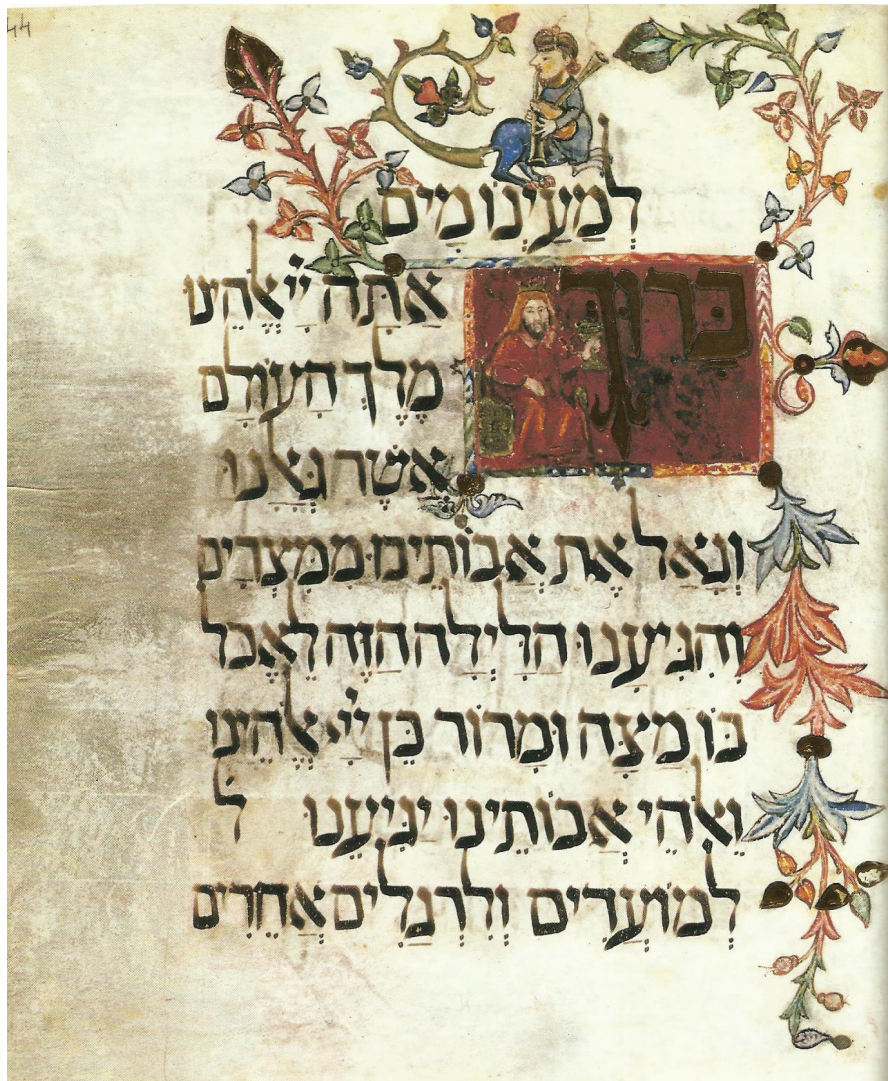 44
לְמַעַיְנוֹ מָיִם
בָּרוּךְ אַתָּה יְיָ אֱלֹהֵינוּ
מֶלֶךְ הָעוֹלָם
אֲשֶׁר גְּאָלָנוּ
וְגָאַל אֶת אֲבוֹתֵינוּ מִמִּצְרַיִם
וְהִגִּיעָנוּ הַלַּיְלָה הַזֶּה לֶאֱכָל
בּוֹ מַצָּה וּמָרוֹר כֵּן יְיָ אֱלֹהֵינוּ
וֵאלֹהֵי אֲבוֹתֵינוּ יַגִּיעֵנוּ ל
לְמוֹעֲדִים וְלִרְגָלִים אֲחֵרִים